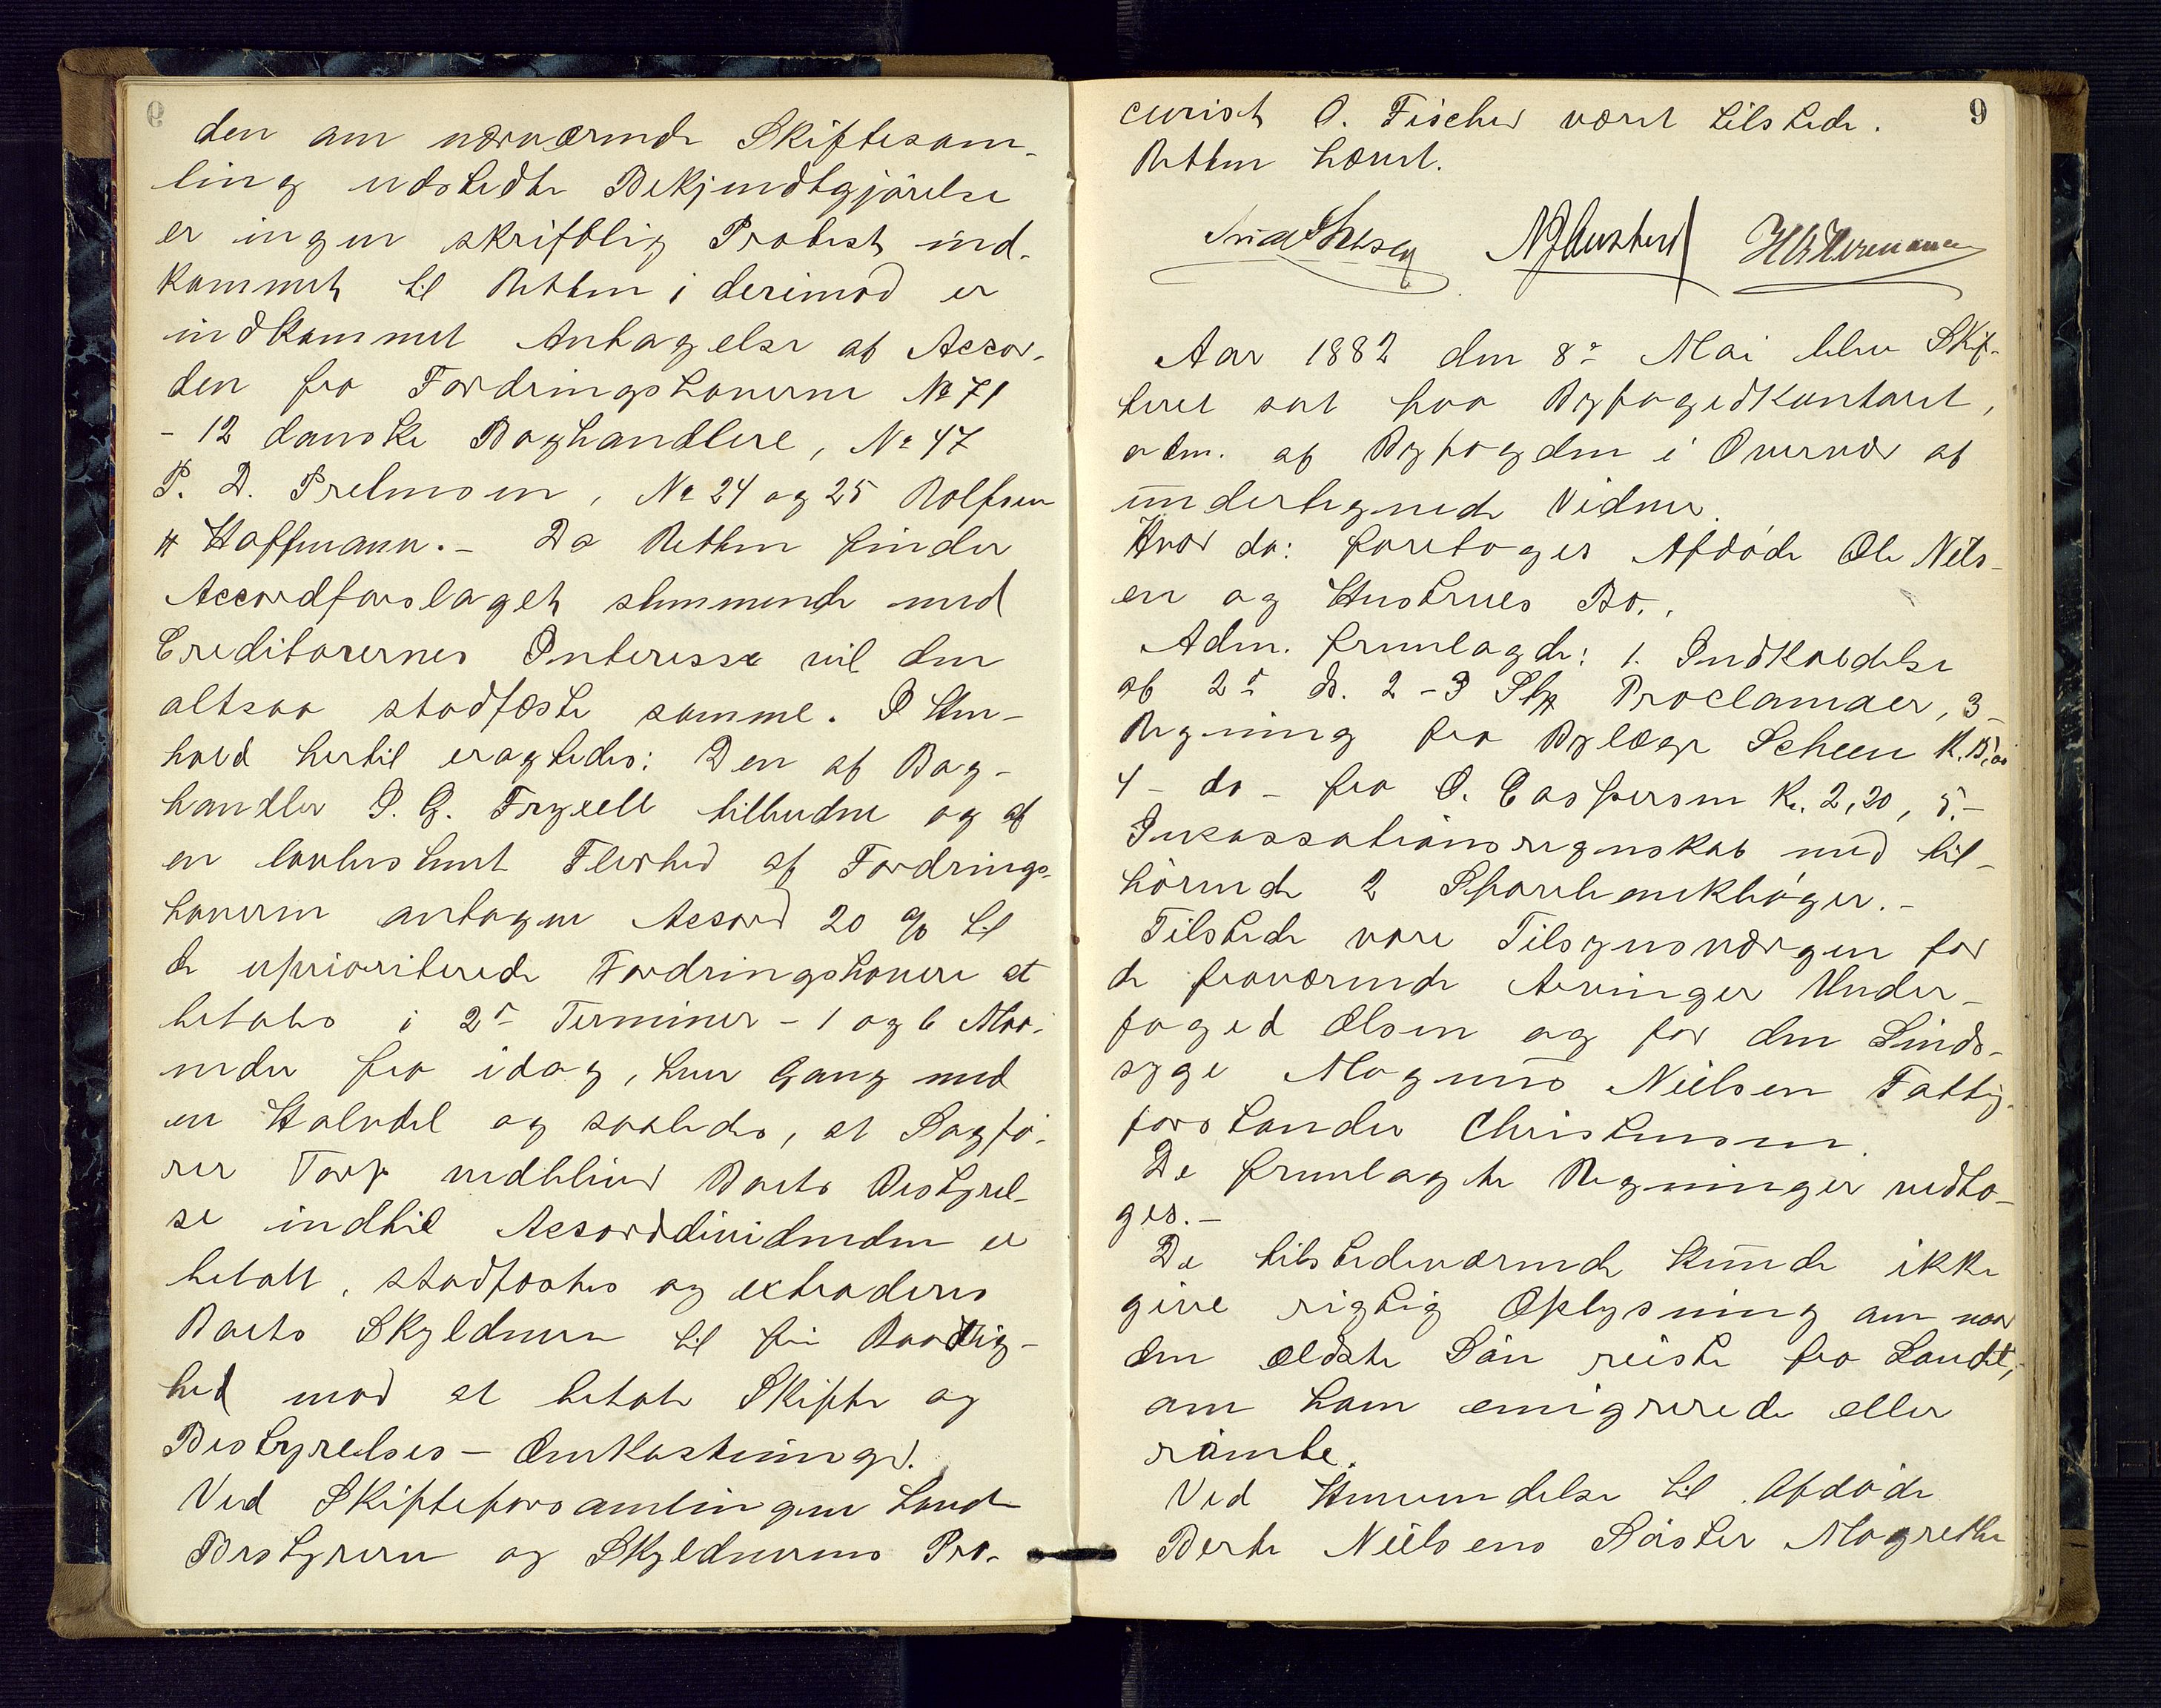 den om nærværende Skiftesam-
ling udstedte Bekjendtgjörelse
er ingen skriftlig Protest ind-
kommet til Retten; derimod er
indkommet Antagelse af Accor-
den fra Fordringshaverne № 71
- 12 danske Boghandlere, № 47
P. D. Prelmoen, № 24 og 25 Rolfsen
& Hoffmann. - Da Retten finder
Accordforslaget stemmende med
Creditorernes Interesse vil den
altsaa stadfæste samme. I Hen-
hold hertil eragtedes: Den af Bog-
handler P. G. Fryxell tilbudne og af
en lovbestemt Flerhed af Fordrings-
haverne antagne Accord 20 % til
de uprioriterede Fordringshavere at
betales i 2de Terminer - 1 og 6 Maa-
neder fra idag, hver Gang med
en Halvdel og saaledes, at Sagfö-
rer Torp vedbliver Boets Bestyrel-
se indtil Accorddividenden er
betalt, stadfæstes og extraderes
Boets Skyldneren til fri Raadig-
hed mod at betale Skifte og
Bestyrelses- Omkostninger.
Ved Skifteforsamlingen havde
Bestyreren og Skyldnerens Pro-
9
curist O. Fischer været tilstede.
Retten hævet.
Aar 1882 den 8de Mai blev Skif-
teret sat paa Byfogedkontoret,
adm. af Byfogden i Overvær af
undertegnede Vidner.
Hvor da: foretoges Afdöde Ole Niels-
en og Hustrues Bo.
Adm. fremlagde: 1. Indkaldelse
af 2de ds. 2 - 3 Stk Proclamaer, 3 -
Regning fra Bylæge Scheen
4 - do - fra O. Caspersen Kr. 2,20, 5. -
Incassationsregnskab med til-
hörende 2 Sparebankböger. -
Tilstede vare Tilsynsværgen for
de fraværende Arvinger Under-
foged Olsen og for den Sinds-
syge Magnus Nielsen Fattig-
forstander Christensen.
De fremlagte Regninger vedto-
ges. -
De tilstedeværende kunde ikke
give rigtig Oplysning om naar
den ældste Sön reiste fra Landet,
om ham emigrerede eller
römte.
Ved Henvendelse til Afdöde
Berte Nielsens Söster Magrethe